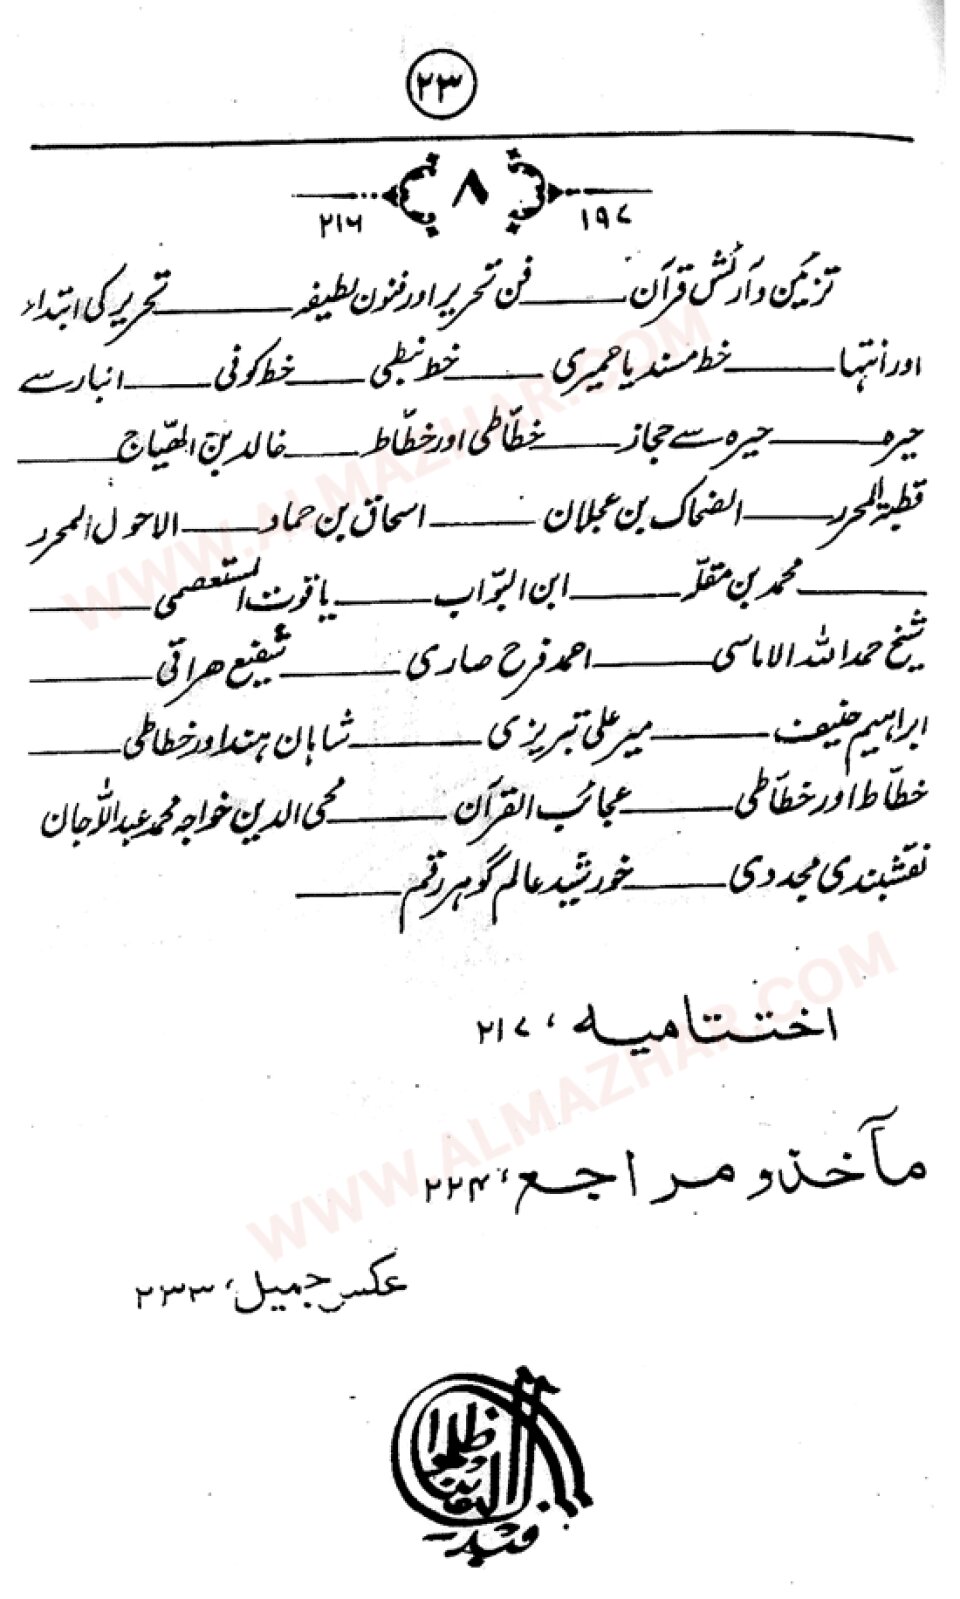 ۲۳
۱۹۷ ۸ ۲۱۶
تزئین و آرائش قرآن ـــــ فن تحریر اور فنون لطیفہ ـــــ تحریر کی ابتداء
اور انتہا ـــــ خط مسند یا حمیری ـــــ خط نبطی ـــــ خط کوفی ـــــ انبار سے
حیرہ ـــــ حیرہ سے حجاز ـــــ خطّاطی اور خطّاط ـــــ خالد بن الھیّاج ـــــ
قطبۃ المحرر ـــــ الضحاک بن عجلان ـــــ اسحاق بن حماد ـــــ الاحول المحرر
ـــــ محمد بن مقلّہ ـــــ ابن البوّاب ـــــ یاقوت المستعصمی ـــــ
شیخ حمد اللہ الاماسی ـــــ احمد قرح صاری ـــــ شفیع ھراتی ـــــ
ابراہیم حنیف ـــــ میر علی تبریزی ـــــ شاہان ہند اور خطاطی ـــــ
خطّاط اور خطّاطی ـــــ عجائب القرآن ـــــ محی الدین خواجہ محمد عبداللہ جان
نقشبندی مجددی ـــــ خورشید عالم گوہر رقم ـــــ
اختتامیہ، ۲۱۷
مآخذ و مراجع، ۲۲۴
عکس جمیل، ۲۳۳
WWW.ALMAZHAR.COM
WWW.ALMAZHAR.COM